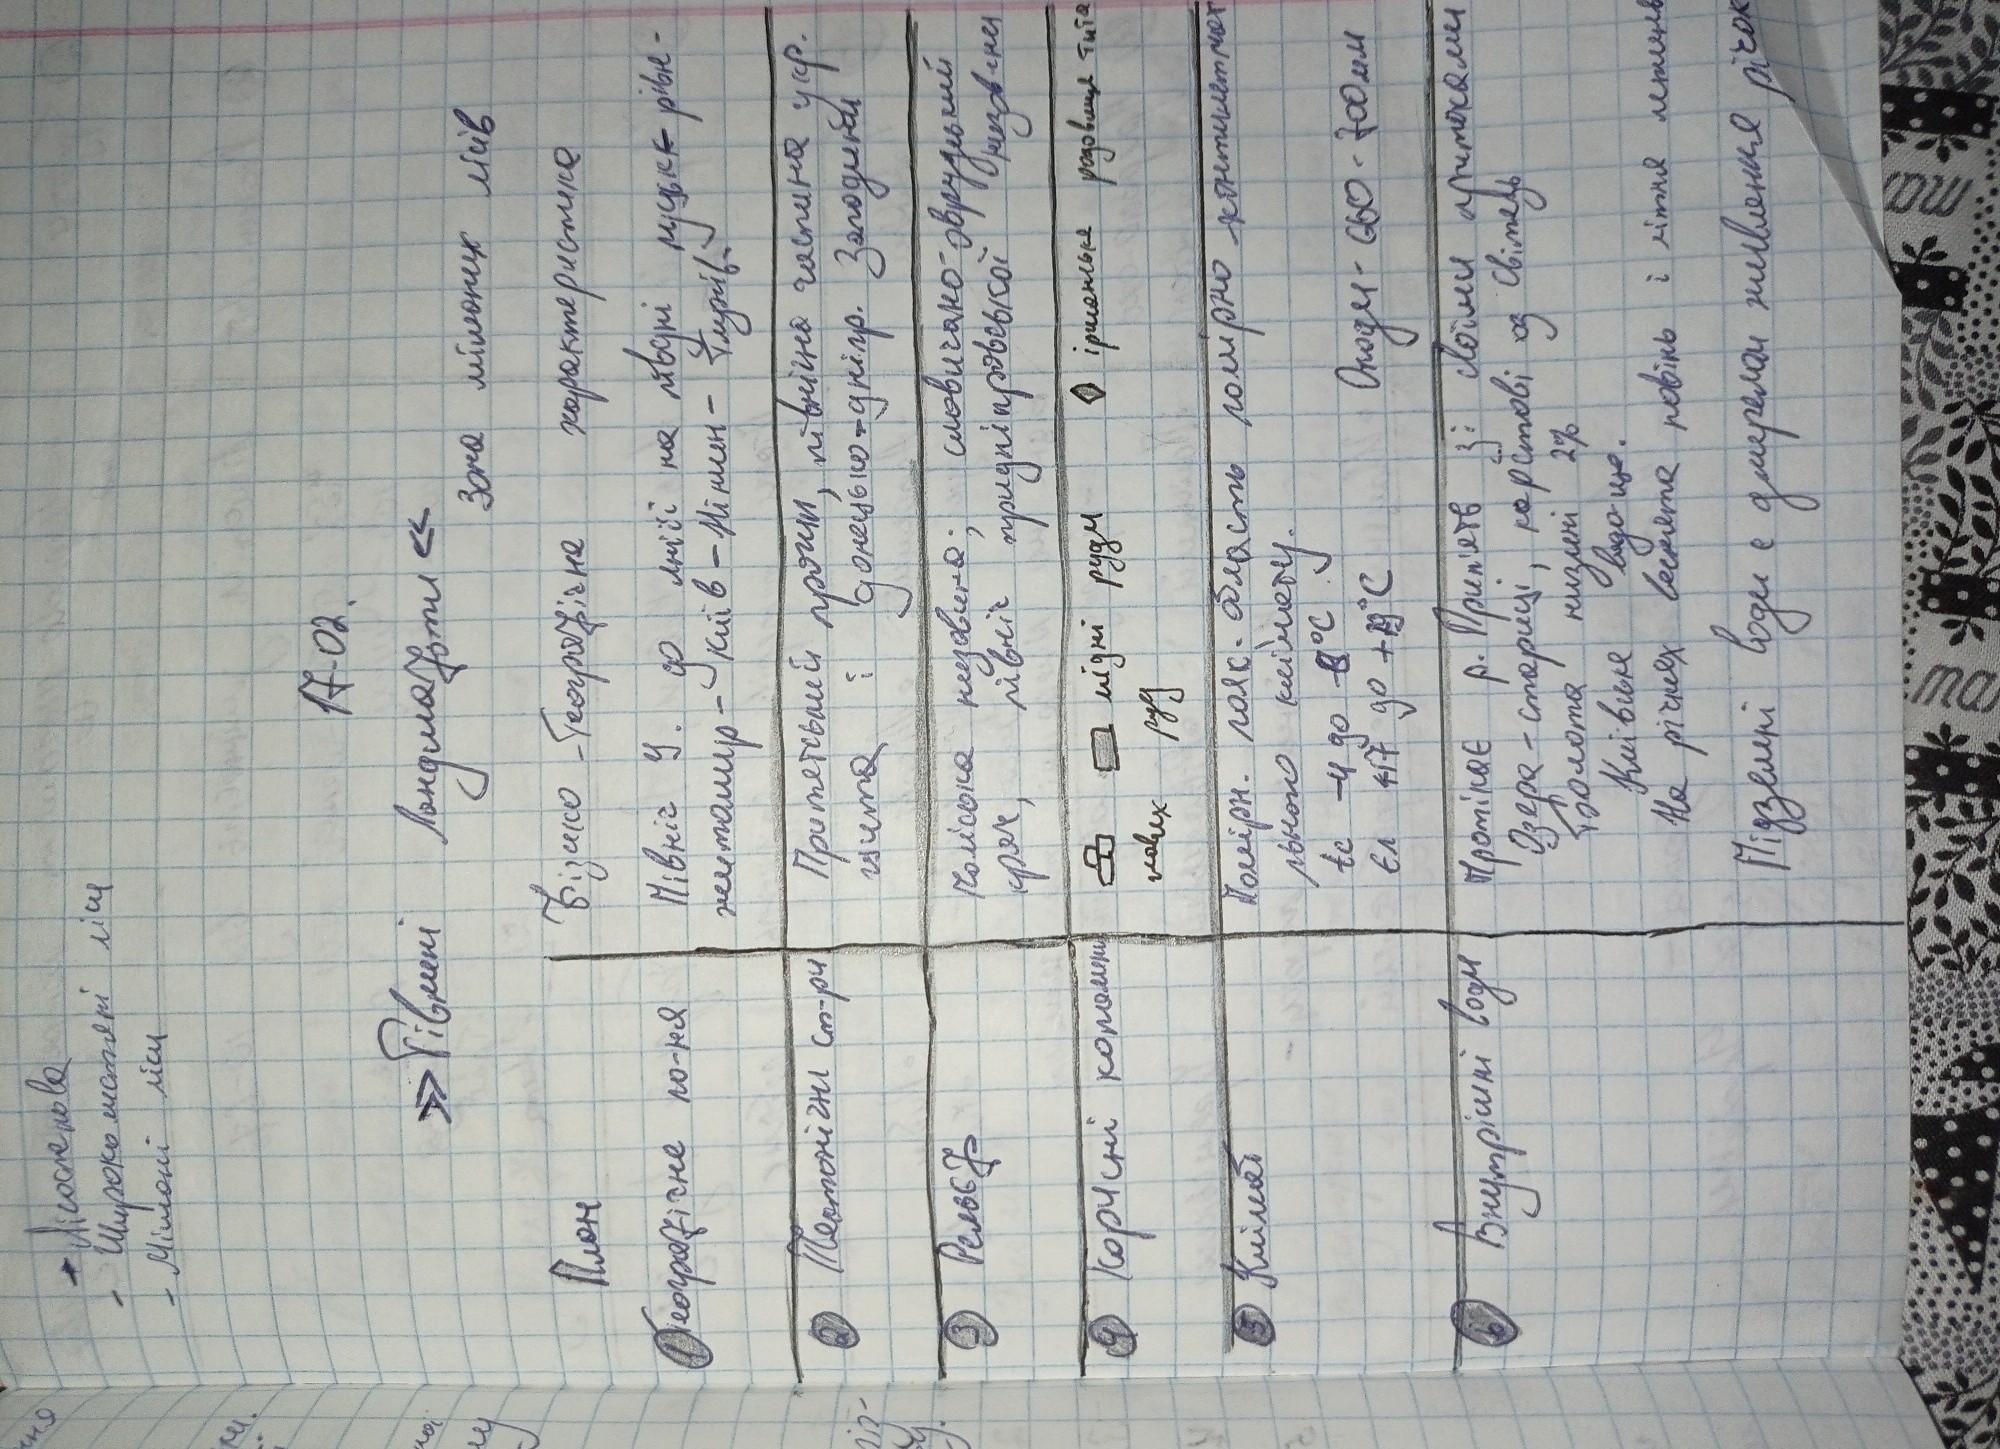 Лісостепова
- Широколистяні ліси
- Мішані ліси
17-02.
Рівнені Ландшафти
Зона мішаних лісів
План Фізико-Географічна характеристика
1 Географічне по-ня Північ У. до лінії на півдні луцьк-рівн-
житомир-київ-Ніжин-Глухів.
2 Тектонічні ст-ри Прип'ятський прогин, північна частина укр.
щита і донецько-дніпр. Западини
3 Рельєф Поліська низовина; словечано-овруцький
кряж, північ придніпровської низовини
4 Корисні копалини мідні руди іршанське родовище тита
нових руд
5 Клімат Помірн. пояс. область помірно-континентал
льного клімату.
tс -4 до -8°C. Опади-600-700мм
tл +17 до +19°C
6 Внутрішні води Протікає р. Прип'ять зі своїми притоками
Озера-стариці, карстові оз Світязь
Болота низинні 2%
Київське вдсх-ще.
На річках весняна повінь і літня межень
Підземні води є джерелом живлення річок